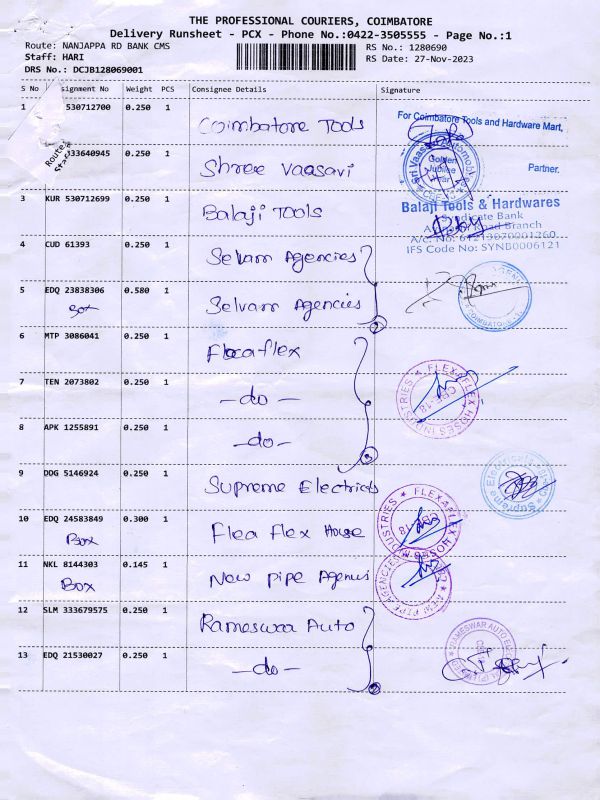 THE PROFESSIONAL COURIERS, COIMBATORE
Delivery Runsheet - PCX - Phone No.:0422-3505555 - Page No.:1
Route: NANJAPPA RD BANK CMS RS No.: 1280690
Staff: HARI RS Date: 27-Nov-2023
DRS No.: DCJB128069001
S No signment No Weight PCS Consignee Details Signature
1 530712700 0.250 1 Coimbatore Tools
For Coimbatore Tools and Hardware Mart,
Partner.
Route:
333640945 0.250 1 Shree Vaasavi
Golden Jubilee
3 KUR 530712699 0.250 1 Balaji Tools
Balaji Tools & Hardwares
Syndicate Bank
Road Branch
A/c. No: 61219070001260
IFS Code No: SYNB0006121
4 CUD 61393 0.250 1 Selvam Agencies
5 EDQ 23838306 0.580 1 Selvam Agencies
Box
2
COIMBATORE
6 MTP 3086041 0.250 1 Flecaflex
7 TEN 2073802 0.250 1 -do-
FLEX-A-FLEX HOSES INDUSTRIES
CBE-18
8 APK 1255891 0.250 1 -do-
3
9 DDG 5146924 0.250 1 Supreme Electricls
10 EDQ 24583849 0.300 1 Flea Flex House
Box
FLEX-A-FLEX HOSES INDUSTRIES
CBE-18
11 NKL 8144303 0.145 1 New pipe Agenies
Box
12 SLM 333679575 0.250 1 Rameswaa Auto
13 EDQ 21530027 0.250 1 -do-
2